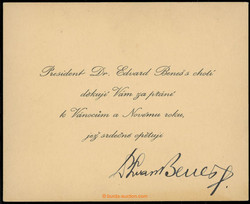 President Dr. Edvard Beneš s chotí
děkují Vám za přání
k Vánocům a Novému roku,
jež srdečně opětují
Edvard Beneš